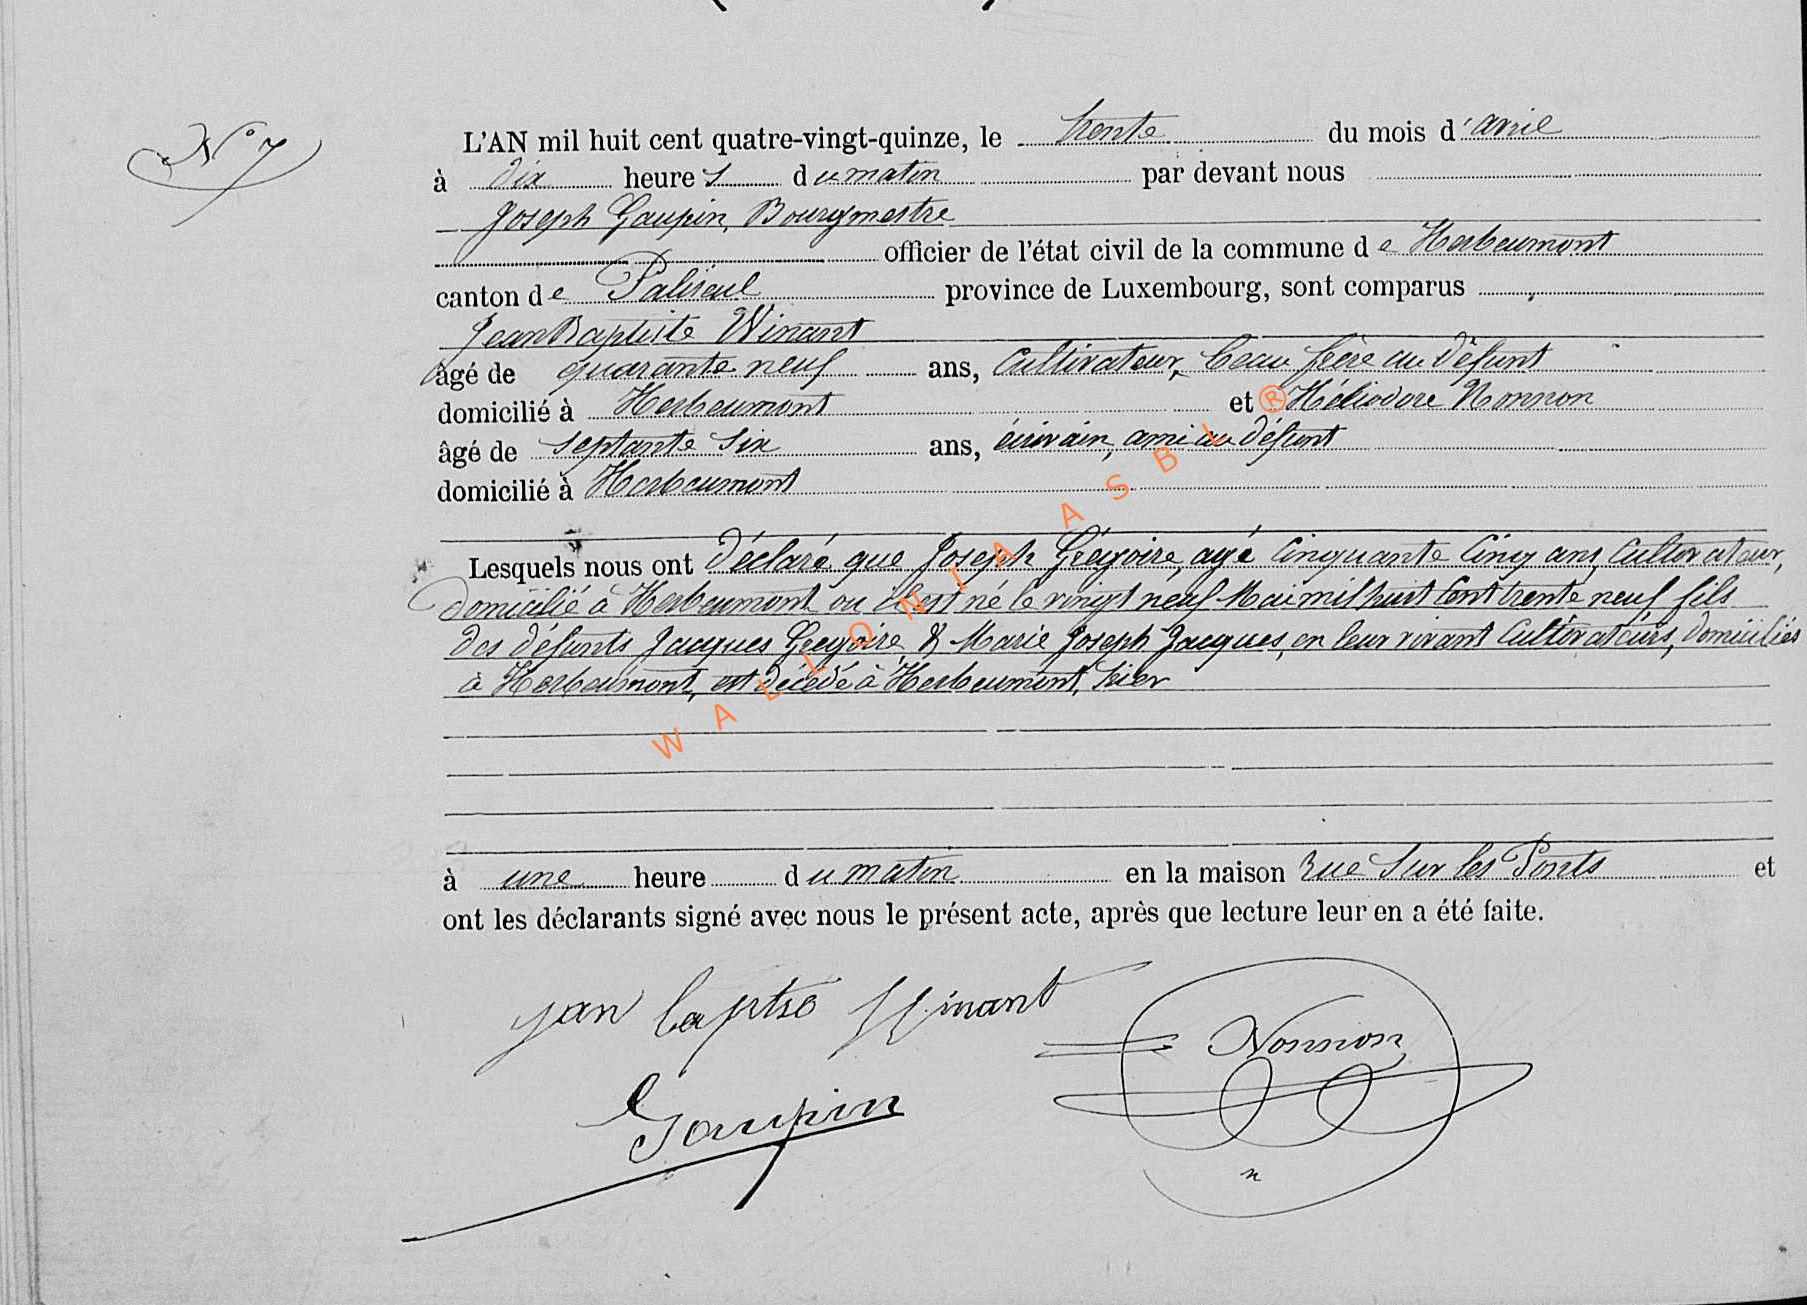 N° 7
L'AN mil huit cent quatre-vingt-quinze, le trente du mois d'avril
à dix heures du matin par devant nous
Joseph Gaupin, Bourgmestre
officier de l'état civil de la commune de Herbeumont
canton de Paliseul province de Luxembourg, sont comparus
Jean Baptiste Winant
âgé de quarante neuf ans, Cultivateur, beau frère au défunt
domicilié à Herbeumont et ® Héliodore Nonnon
âgé de septante six ans, écrivain, ami au défunt
domicilié à Herbeumont
Lesquels nous ont déclaré que Joseph Grégoire, agé Cinquante Cinq ans, Cultivateur,
domicilié à Herbeumont ou il est né le vingt neuf Mai mil huit Cent trente neuf, fils
des défunts Jacques Gregoire & Marie Joseph Jacques, en leur vivant Cultivateurs, domiciliés
à Herbeumont, est décédé à Herbeumont, hier
à une heure du matin en la maison rue Sur les Ponts et
ont les déclarants signé avec nous le présent acte, après que lecture leur en a été faite.
jan baptse Winant
Nonnon
Gaupin
WALLONIA ASBL